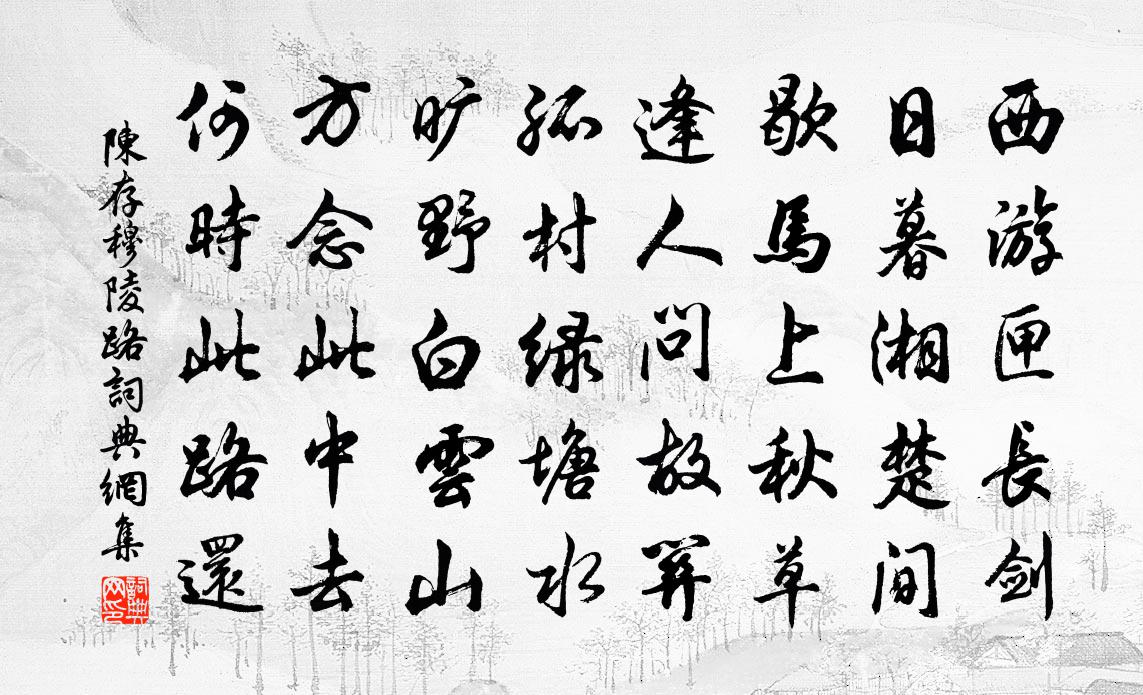 西游匣長剑
日暮湘楚间
歇馬上秋草
逢人問故關
孤村绿塘水
旷野白雲山
方念此中去
何時此路還
陳存穆陵路詞典網集
詞典网印